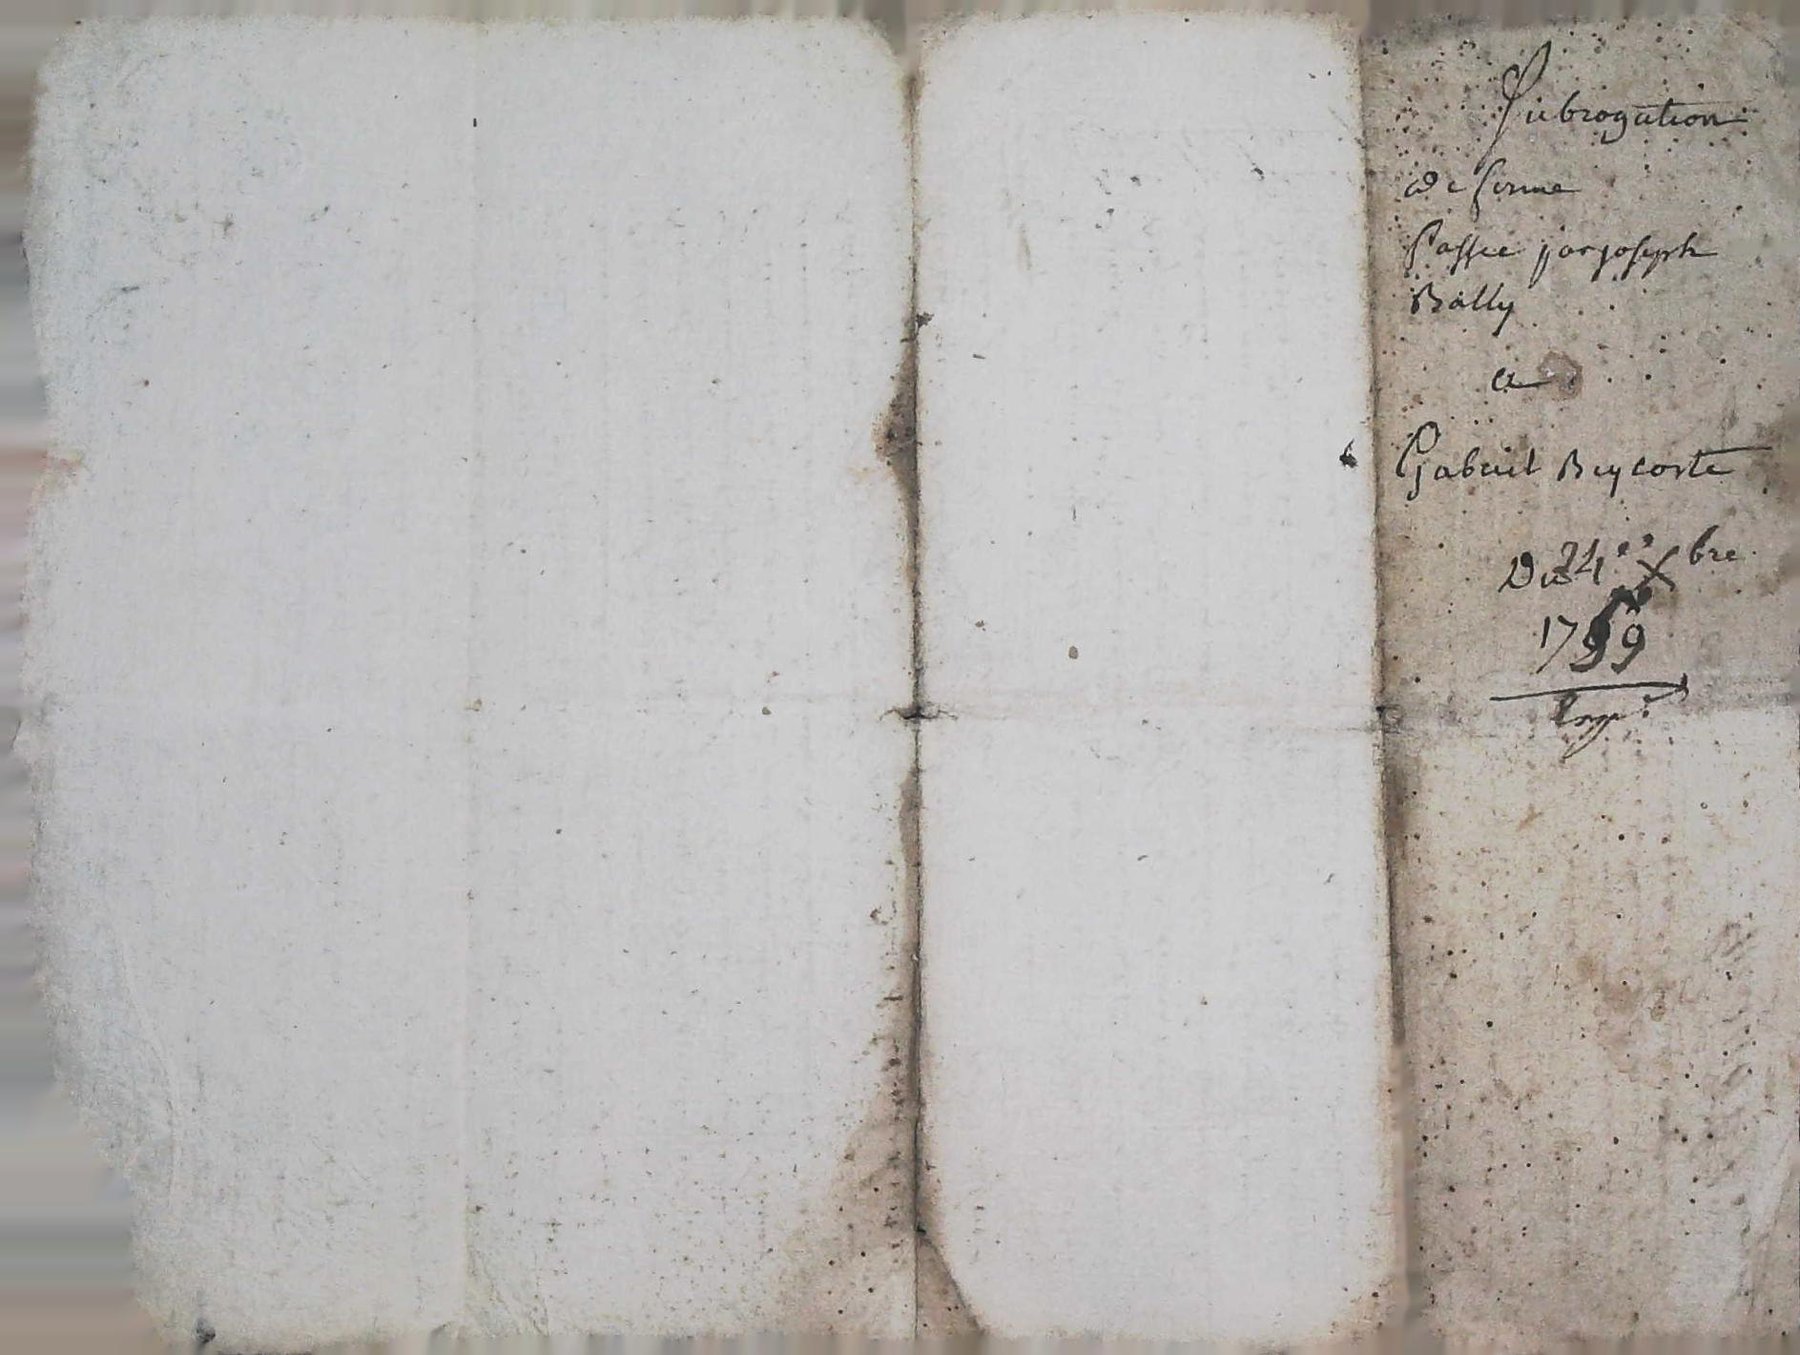 Subrogation
de ferme
Passee par joseph
Bally
a
Gabriel Beycoste
Du 24e Xbre
1759